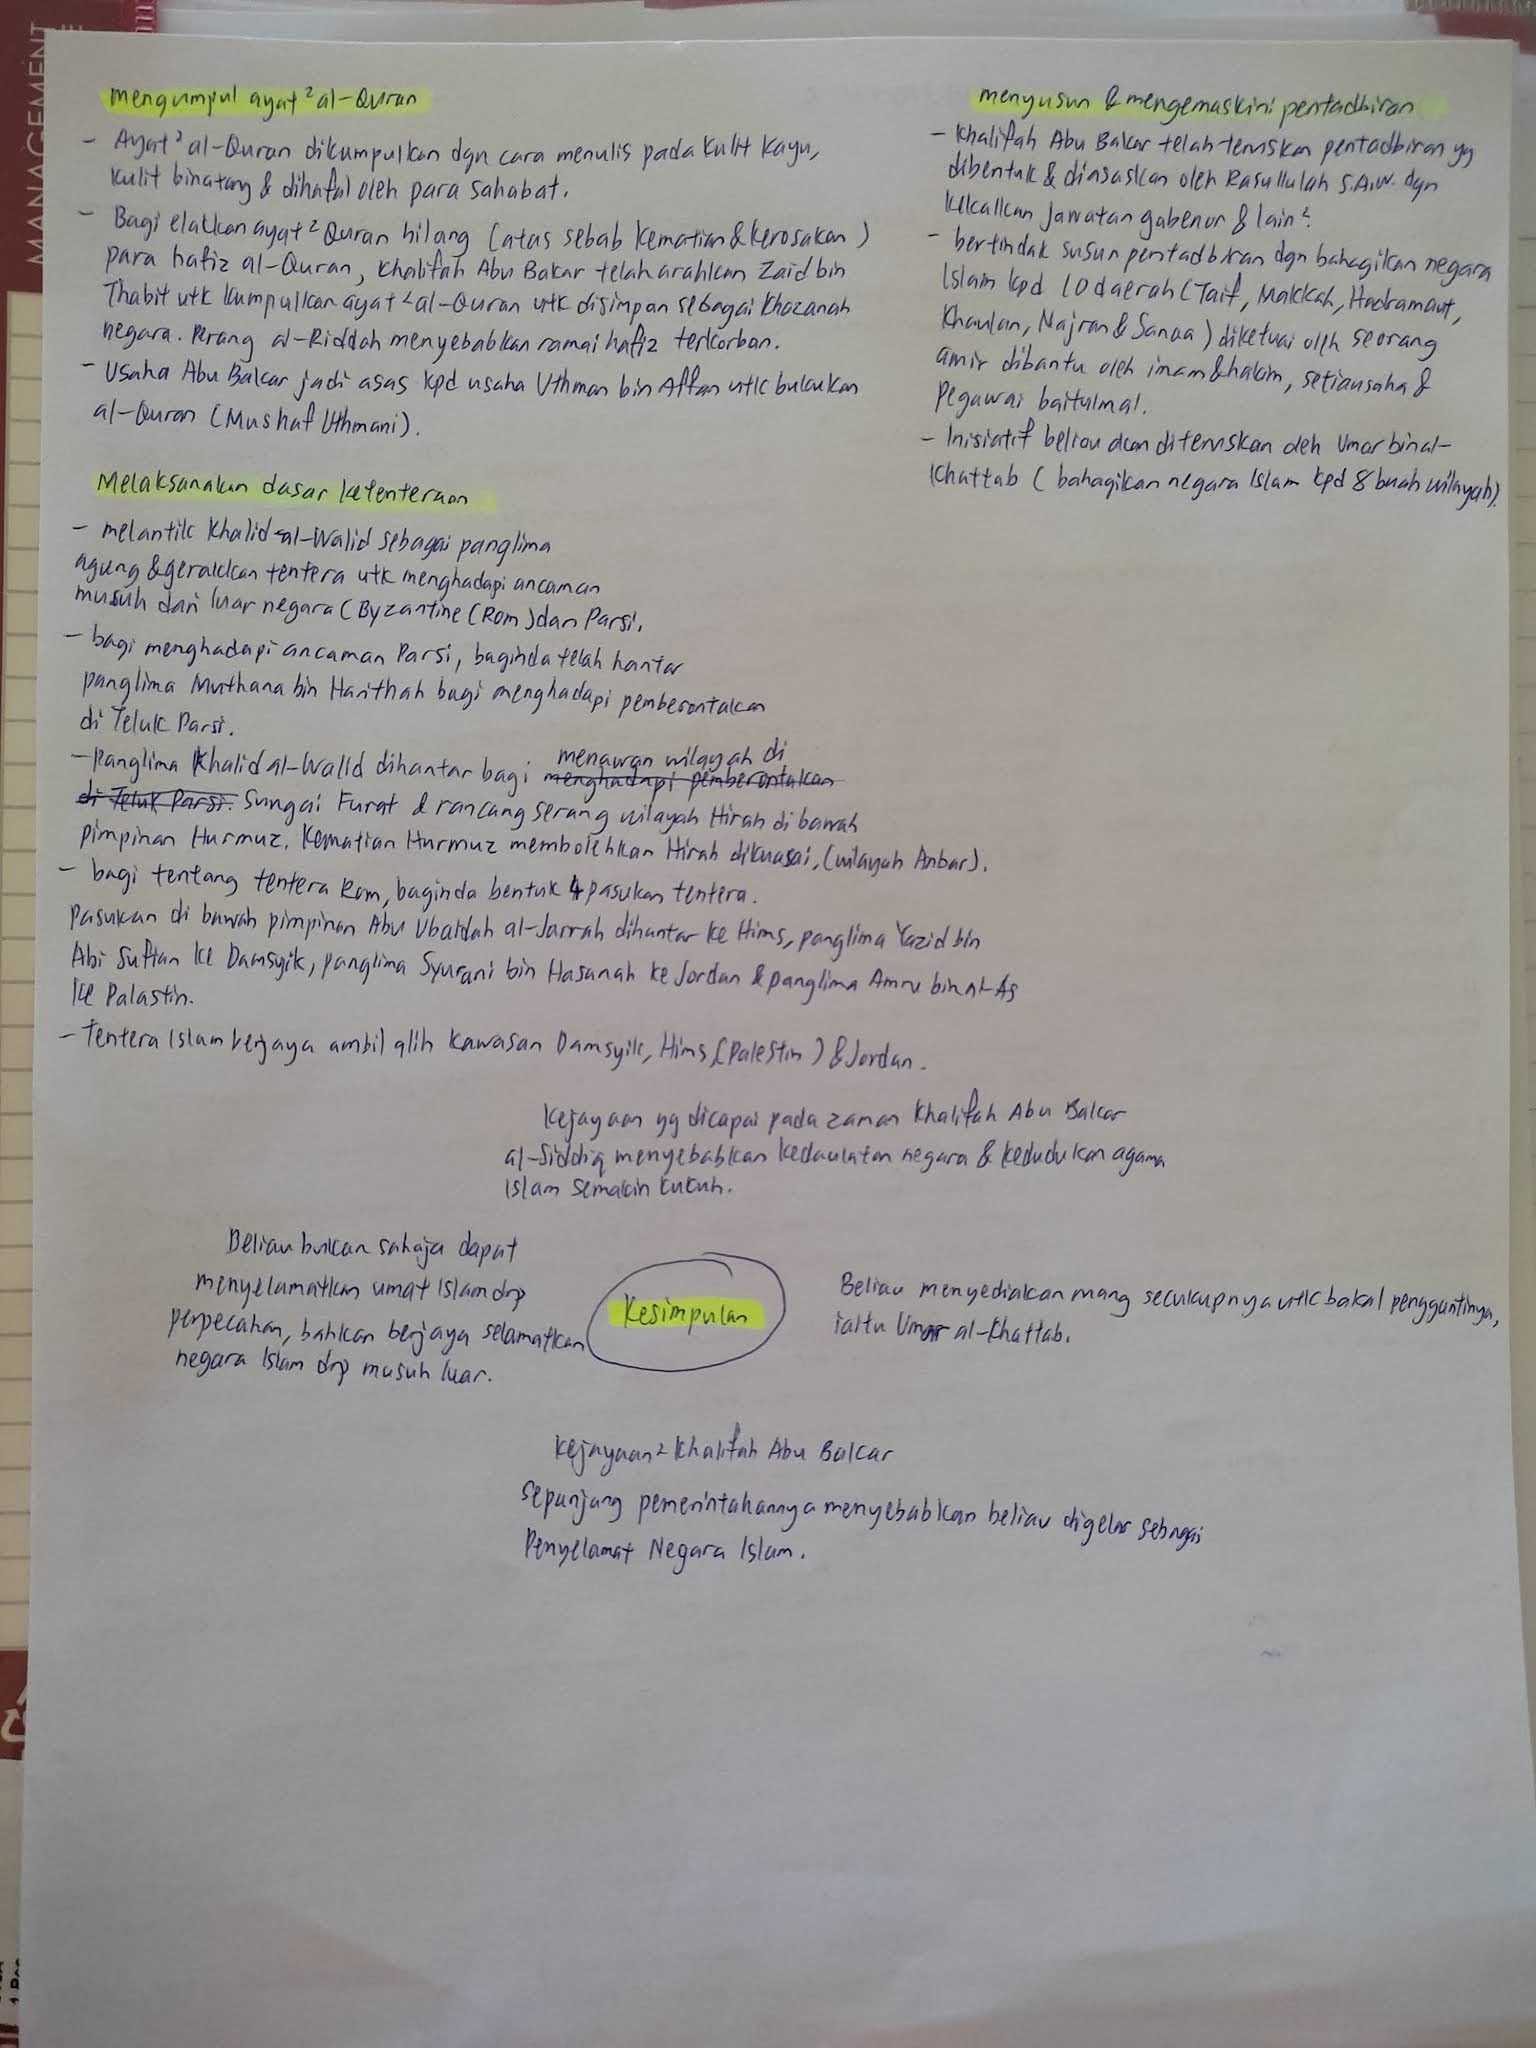 MANAGEMENT
mengumpul ayat² al-Quran
- Ayat² al-Quran dikumpulkan dgn cara menulis pada kulit kayu,
kulit binatang & dihafal oleh para sahabat.
- Bagi elakkan ayat² Quran hilang (atas sebab kematian & kerosakan)
para hafiz al-Quran, Khalifah Abu Bakar telah arahkan Zaid bin
Thabit utk kumpulkan ayat² al-Quran utk disimpan sebagai khazanah
negara. Perang al-Riddah menyebabkan ramai hafiz terkorban.
- Usaha Abu Bakar jadi asas kpd usaha Uthman bin Affan utk bukukan
al-Quran (Mushaf Uthmani).
menyusun & mengemaskini pentadbiran
- Khalifah Abu Bakar telah teruskan pentadbiran yg
dibentuk & diasaskan oleh Rasullulah S.A.W. dgn
kekalkan jawatan gabenor & lain².
- bertindak susun pentadbiran dgn bahagikan negara
Islam kpd 10 daerah (Taif, Makkah, Hadramaut,
Khaulan, Najran & Sanaa) diketuai oleh seorang
amir dibantu oleh imam & hakim, setiausaha &
pegawai baitulmal.
- Inisiatif beliau akan diteruskan oleh Umar bin al-
Khattab (bahagikan negara Islam kpd 8 buah wilayah).
Melaksanakan dasar ketenteraan
- melantik Khalid al-Walid sebagai panglima
agung & gerakkan tentera utk menghadapi ancaman
musuh dari luar negara (Byzantine (Rom) dan Parsi.
- bagi menghadapi ancaman Parsi, baginda telah hantar
panglima Muthana bin Harithah bagi menghadapi pemberontakan
di Teluk Parsi.
- Panglima Khalid al-Walid dihantar bagi menawan wilayah di
menghadapi pemberontakan
di Teluk Parsi. Sungai Furat & rancang serang wilayah Hirah di bawah
pimpinan Hurmuz. Kematian Hurmuz membolehkan Hirah dikuasai, (wilayah Anbar).
- bagi tentang tentera Rom, baginda bentuk 4 pasukan tentera.
Pasukan di bawah pimpinan Abu Ubaidah al-Jarrah dihantar ke Hims, panglima Yazid bin
Abi Sufian ke Damsyik, panglima Syurani bin Hasanah ke Jordan & panglima Amru bin al-As
ke Palastin.
- Tentera Islam berjaya ambil alih kawasan Damsyik, Hims, (Palestin) & Jordan.
Kejayaan yg dicapai pada zaman Khalifah Abu Bakar
al-Siddiq menyebabkan kedaulatan negara & kedudukan agama
Islam semakin kukuh.
Beliau bukan sahaja dapat
menyelamatkan umat Islam drp
perpecahan, bahkan berjaya selamatkan
negara Islam drp musuh luar.
Kesimpulan
Beliau menyediakan mang secukupnya utk bakal penggantinya,
iaitu Umar al-Khattab.
Kejayaan² Khalifah Abu Bakar
sepanjang pemerintahannya menyebabkan beliau digelar sebagai
Penyelamat Negara Islam.